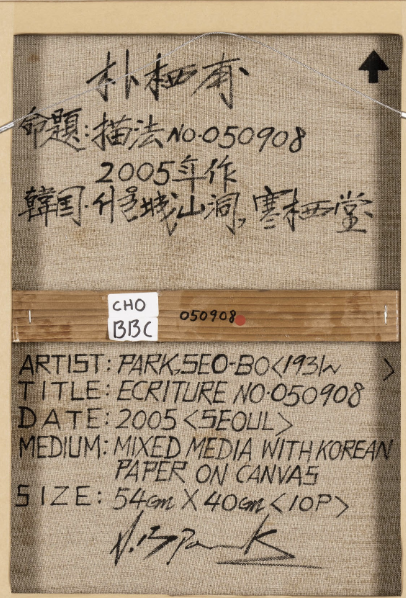 朴栖甫
命題:描法 NO.050908
2005年作
韓国.서울 城山洞, 寒栖堂
CHO
BBC
050908
ARTIST: PARK, SEO-BO <1931~ >
TITLE: ECRITURE NO.050908
DATE: 2005 <SEOUL>
MEDIUM: MIXED MEDIA WITH KOREAN
PAPER ON CANVAS
SIZE: 54cm X 40cm <10P>